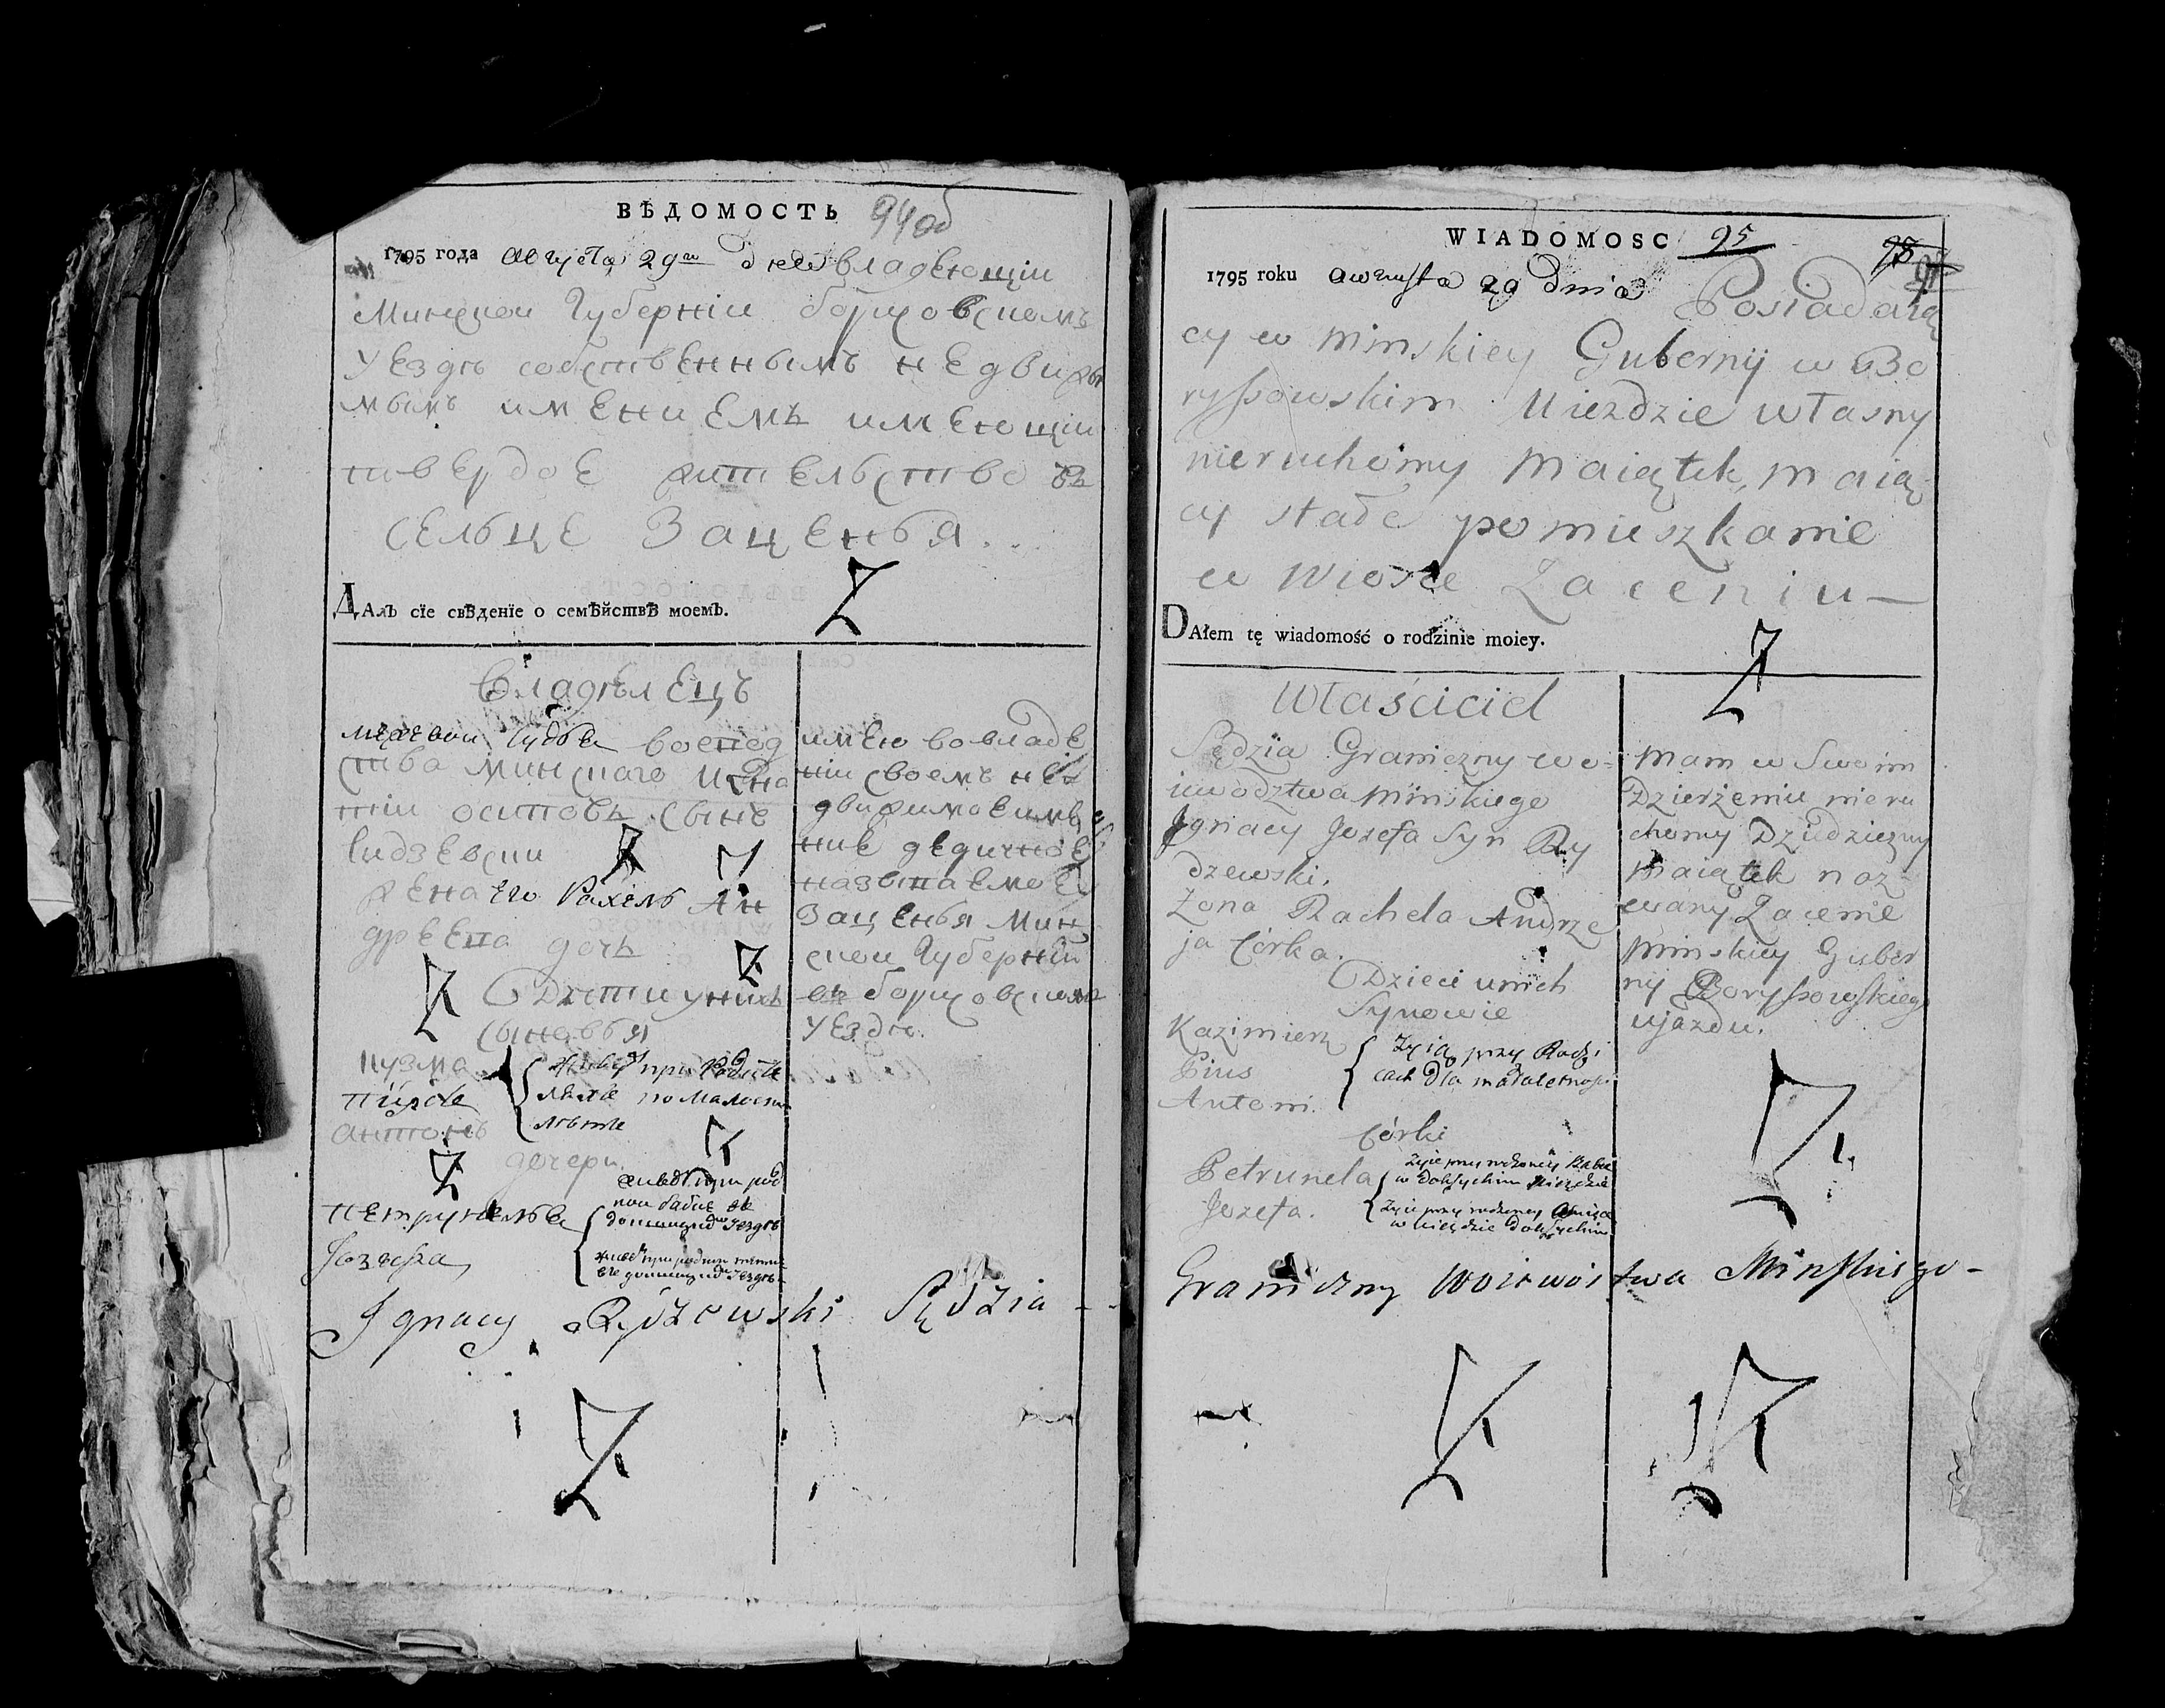 ВѢДОМОСТЬ 94об
1795 года августа 29го дня владеющіи
Минскои Губерніи борисовскомъ
уездѣ собственнымъ недвижи
мымъ имениемъ имеющіи
твердое жительство въ
сельце Заценья
Далъ сїе свѣденїе о семѣйствѣ моемъ.
Владѣлецъ
межевои судья воевод
ства минскаго Игна
тіи осиповъ сынъ
Ридзевски
жена его Рахель Ан
дреева дочь
Дети у них
сыновья
кузма
піусъ
антонъ
живут при родите
ляхъ по малости
летъ
дочери
петрунелья
Іозефа
живет при род
нои бабке въ
уездѣ
имею во владе
ніи своемъ не
движимое име
ние дедично
называемое
Заценья Мин
скои Губерніи
въ борисовском
уезде.
Ignacy Rydzewski Sędzia
WIADOMOSC 95
1795 roku awgusta 29 dnia Posiadaią
cy w Minskiey Gubernij w Bo
ryssowskim Uiezdzie własny
nieruchomy Maiątek, maią
cy stałe pomieszkanie
w Wiosce Zaceniu
DAłem tę wiadomość o rodzinie moiey.
Właściciel
Sędzia Graniczny wo-
iewodztwa Mińskiego
Ignacy Jozefa Syn Ry
dzewski.
Żona Rachela Andrze
ja Córka.
Dzieci u nich
Synowie
Kazimierz
Pius
Antoni.
Zyią przy Rodzi
cach dla małoletnoś
Córki
Petrunela
Jozefa.
Zyie przy rodzoney Babce
w Dokszyckim Uiezdzie
Zyie przy rodzoney
w Uiezdzie Dokszyckim
Mam w Swoim
Dzierżeniu nieru
chomy Dziedziczny
Maiątek naz
wany Zacenie
Minskiey Guber
nij Boryssowskiego
ujazdu.
Graniczny Woiewostwa Minskiego